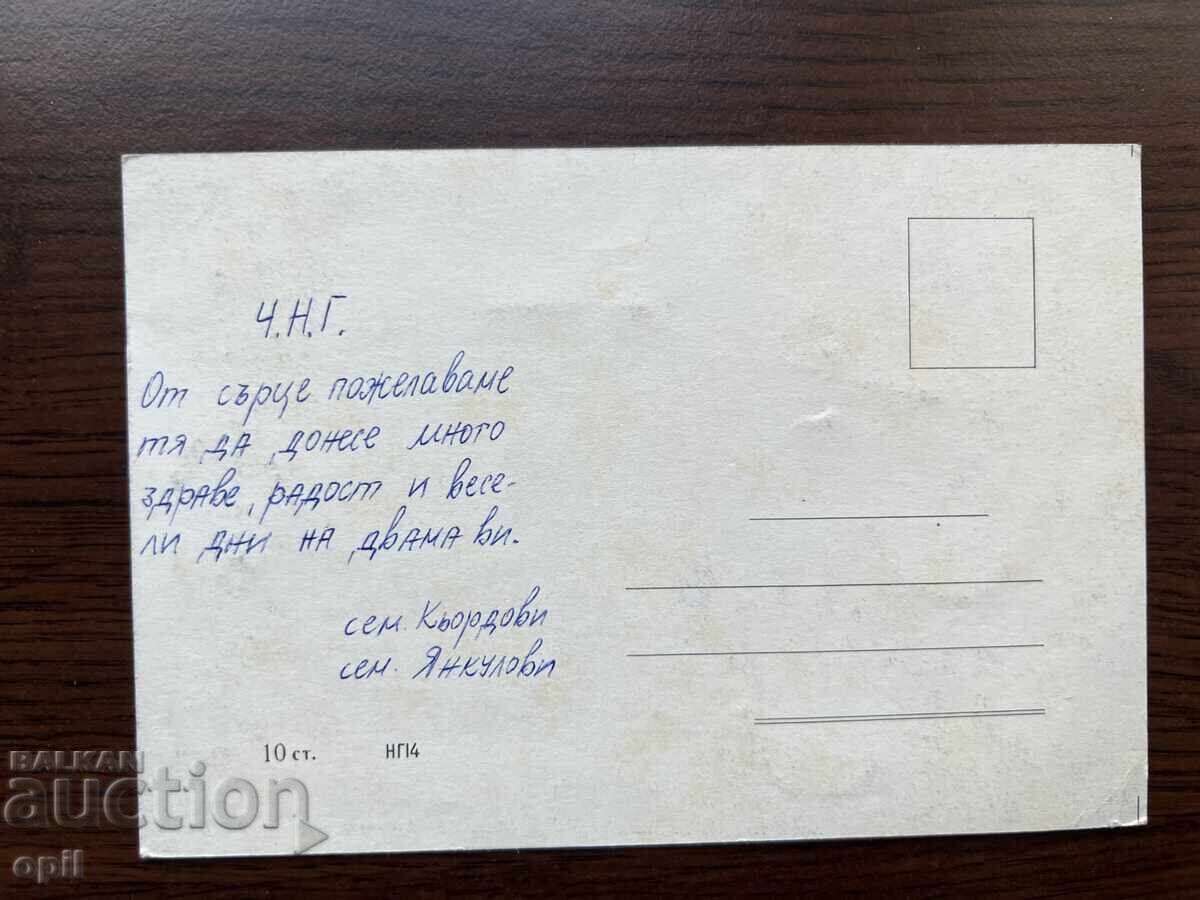 Ч.Н.Г.
От сърце пожелаваме
тя да донесе много
здраве, радост и весе-
ли дни на двама ви.
сем. Кьордови
сем. Янкулови
10 ст. НГ14
BALKAN
auction
opil